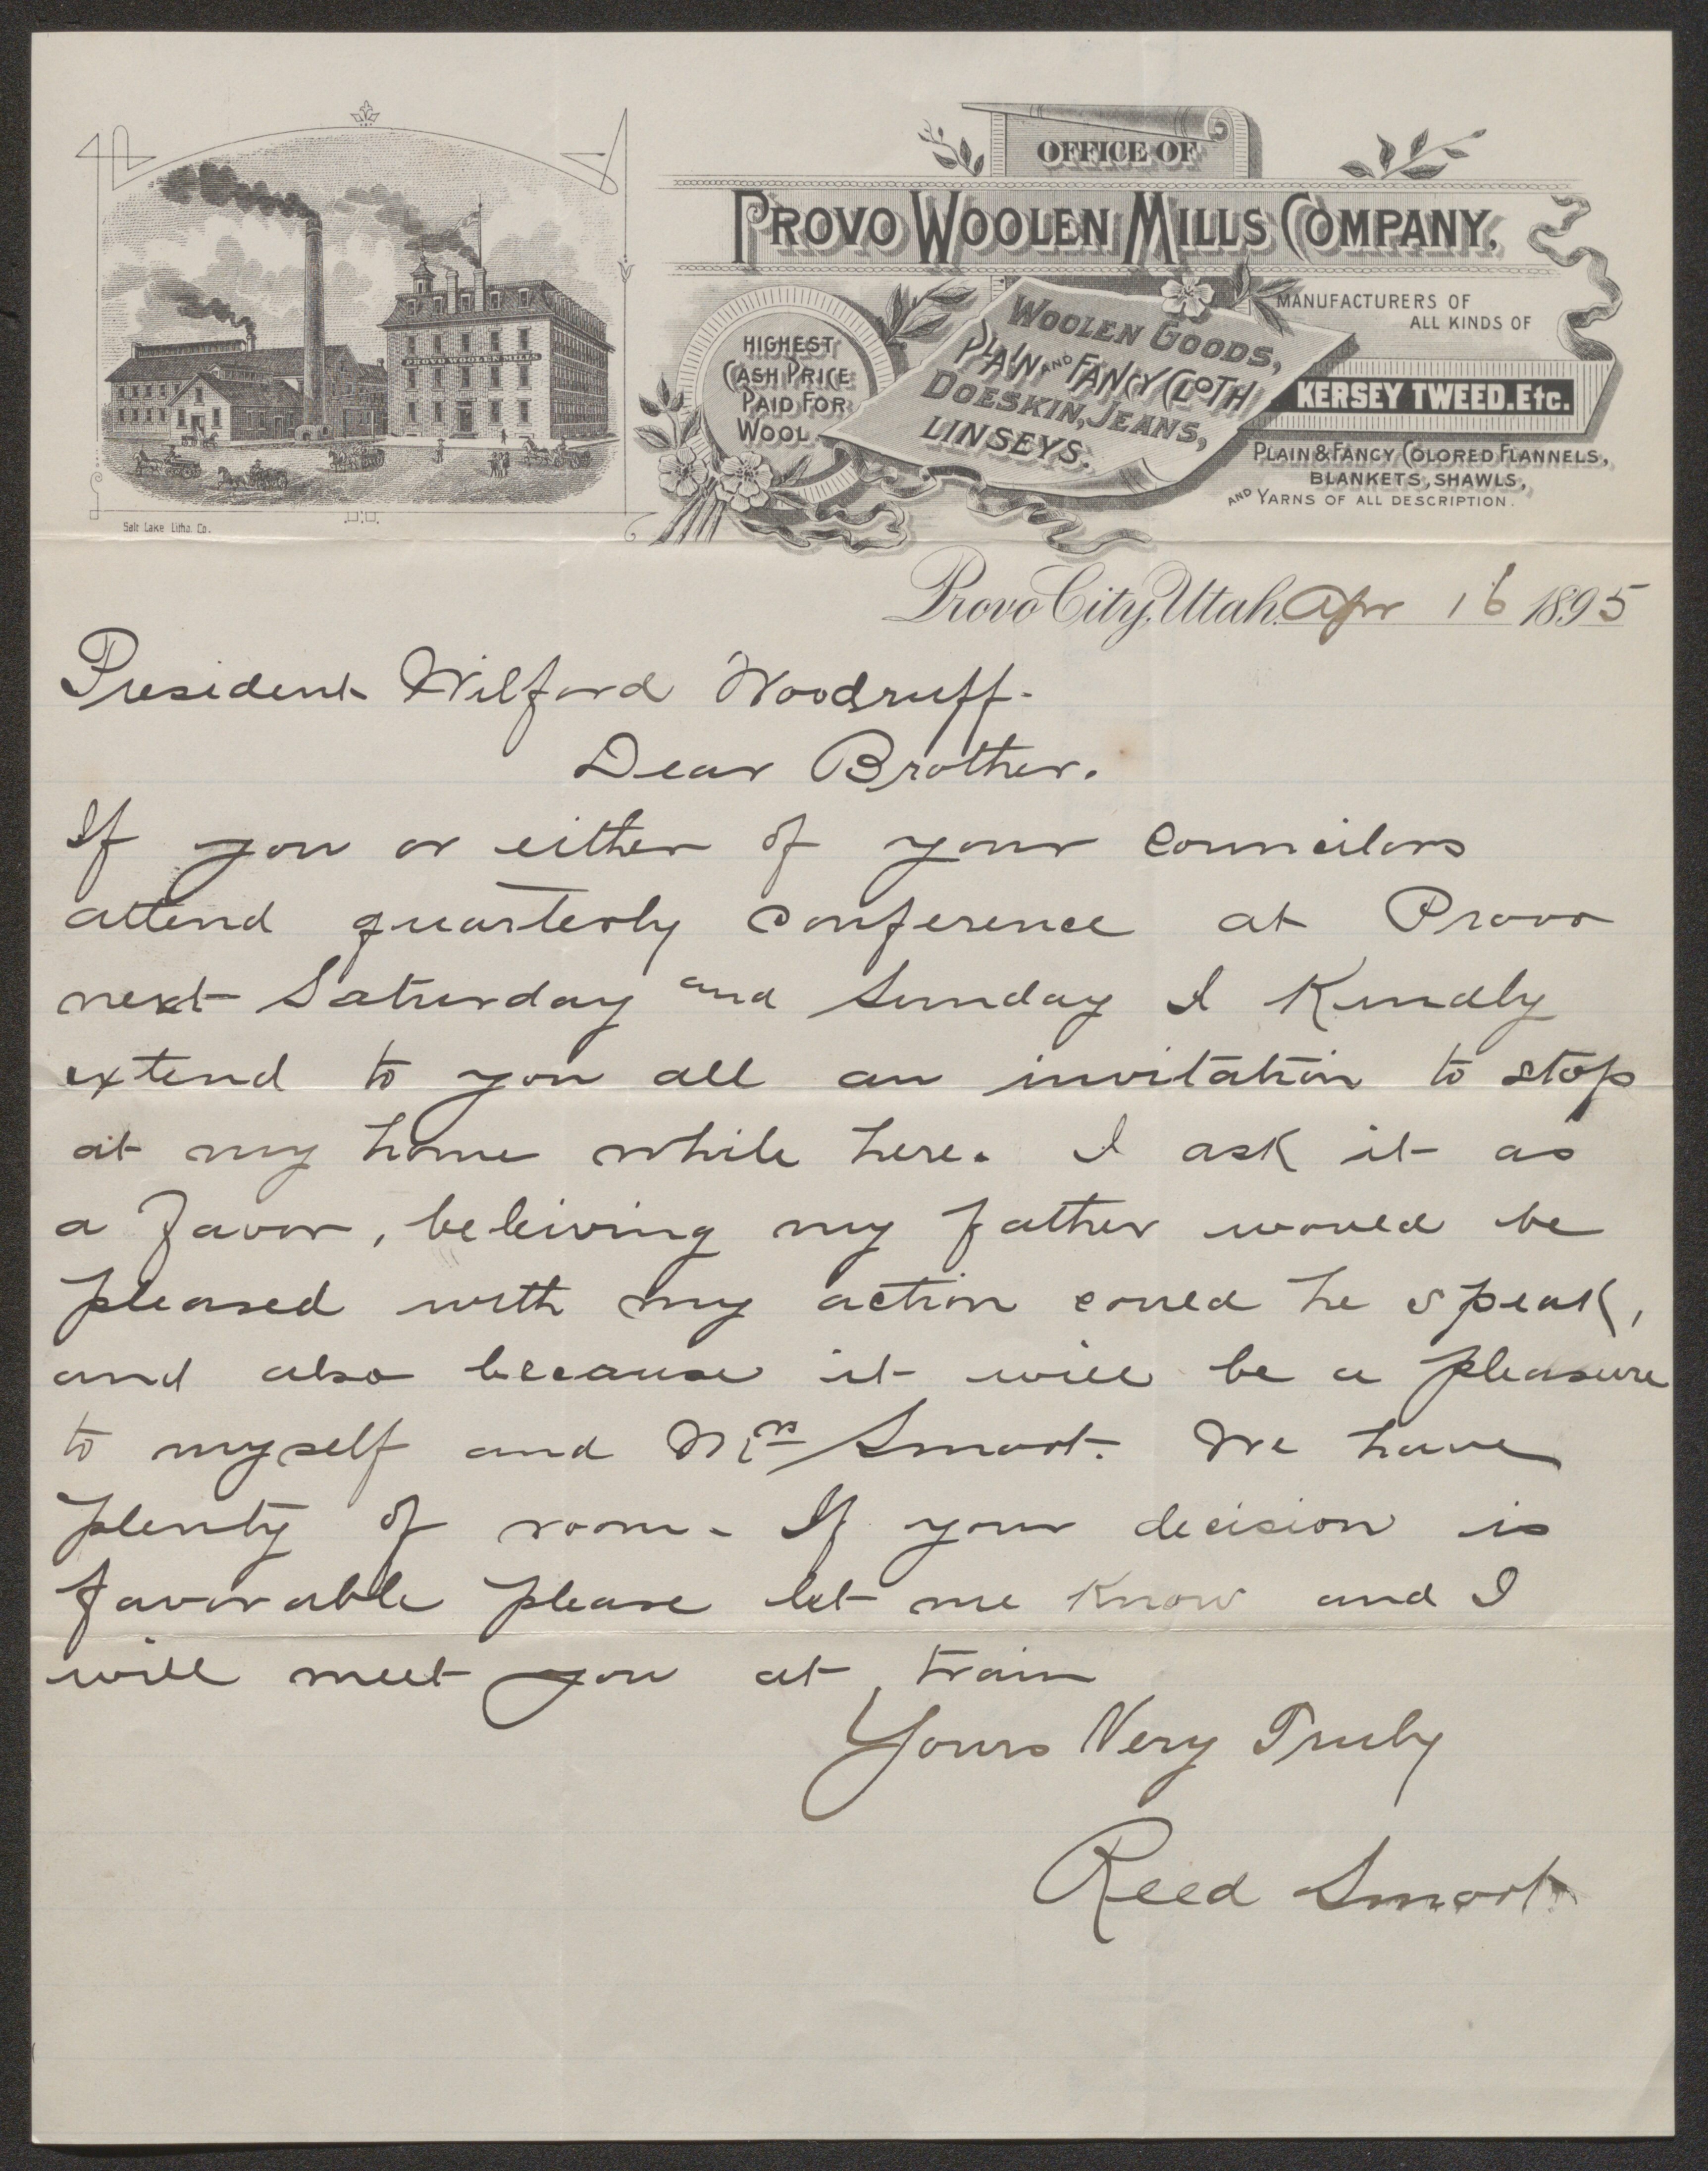 OFFICE OF
PROVO WOOLEN MILLS COMPANY,
PROVO WOOLEN MILLS
Salt Lake Litho. Co.
HIGHEST
CASH PRICE
PAID FOR
WOOL.
WOOLEN GOODS,
PLAIN AND FANCY CLOTH
DOESKIN, JEANS,
LINSEYS.
MANUFACTURERS OF
ALL KINDS OF
KERSEY TWEED. Etc.
PLAIN & FANCY COLORED FLANNELS,
BLANKETS, SHAWLS,
AND YARNS OF ALL DESCRIPTION.
Provo City, Utah. Apr 16 1895
President Wilford Woodruff.
Dear Brother.
If you or either of your Councilors
attend quarterly conference at Provo
next Saturday and Sunday I Kindly
extend to you all an invitation to stop
at my home while here. I ask it as
a favor, beleiving my father would be
pleased with my action could he speak,
and also because it will be a pleasure
to myself and Mrs Smoot. We have
plenty of room. If your decision is
favorable please let me Know and I
will meet you at train
Yours Very Truly
Reed Smoot.